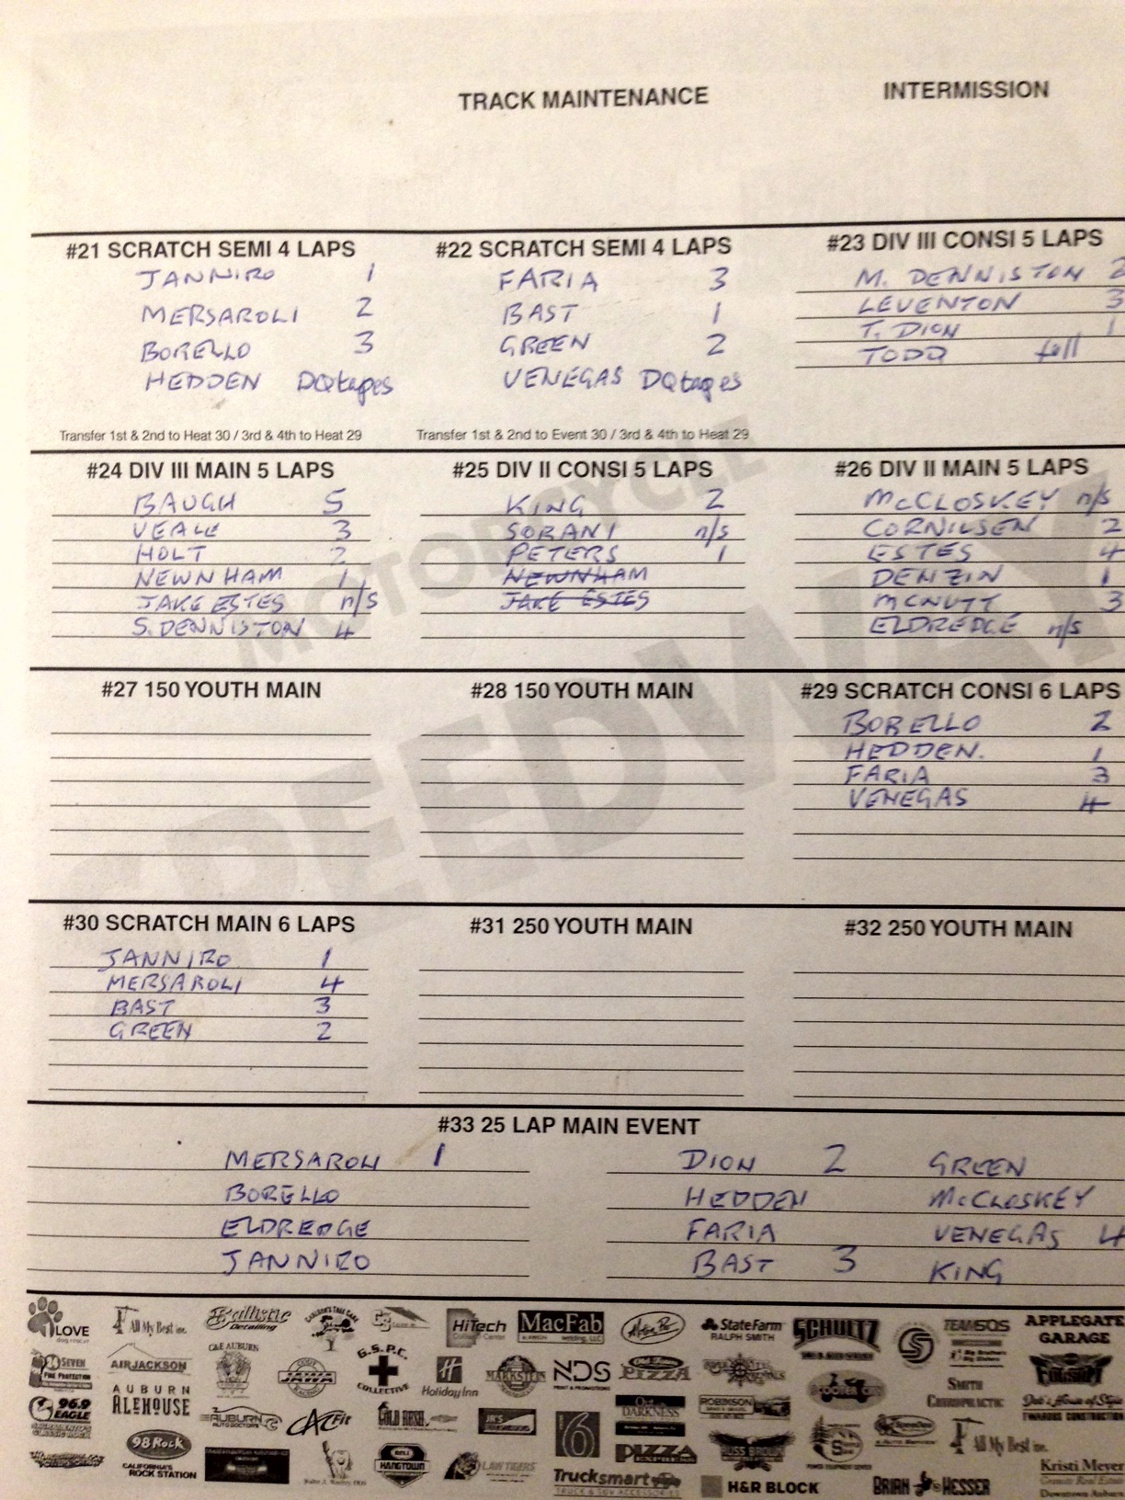 TRACK MAINTENANCE
INTERMISSION
#21 SCRATCH SEMI 4 LAPS
JANNIRO 1
MERSAROLI 2
BORELLO 3
HEDDEN DQtapes
Transfer 1st & 2nd to Heat 30 / 3rd & 4th to Heat 29
#22 SCRATCH SEMI 4 LAPS
FARIA 3
BAST 1
GREEN 2
VENEGAS DQtapes
Transfer 1st & 2nd to Event 30 / 3rd & 4th to Heat 29
#23 DIV III CONSI 5 LAPS
M. DENNISTON 2
LEVENTON 3
T. DION 1
TODD fell
#24 DIV III MAIN 5 LAPS
BAUGH 5
VEALE 3
HOLT 2
NEWNHAM 1
JAKE ESTES n/s
S. DENNISTON 4
#25 DIV II CONSI 5 LAPS
KING 2
SORANI n/s
PETERS 1
NEWNHAM
JAKE ESTES
#26 DIV II MAIN 5 LAPS
McCLOSKEY n/s
CORNILSEN 2
ESTES 4
DENZIN 1
MCNUTT 3
ELDREDGE n/s
#27 150 YOUTH MAIN
#28 150 YOUTH MAIN
#29 SCRATCH CONSI 6 LAPS
BORELLO 2
HEDDEN. 1
FARIA 3
VENEGAS 4
#30 SCRATCH MAIN 6 LAPS
JANNIRO 1
MERSAROLI 4
BAST 3
GREEN 2
#31 250 YOUTH MAIN
#32 250 YOUTH MAIN
MOTORCYCLE
SPEEDWAY
#33 25 LAP MAIN EVENT
MERSAROLI 1 DION 2 GREEN
BORELLO HEDDEN McCLOSKEY
ELDREDGE FARIA VENEGAS 4
JANNIRO BAST 3 KING
LOVE
All My Best inc.
Ballistic Detailing
HiTech
MacFab
StateFarm
RALPH SMITH
SCHULTZ
TEAMSOS
APPLEGATE GARAGE
SEVEN
AIRJACKSON
C&E AUBURN
JAWA
G.S.P.C.
COLLECTIVE
Holiday Inn
NDS
PIZZA
FOLSOM
96.9
EAGLE
AUBURN
ALEHOUSE
AUBURN
GOLD RUSH
DARKNESS
ROBINSON
SMITH
CHIROPRACTIC
98 Rock
CALIFORNIA'S
ROCK STATION
HANGTOWN
LAW TIGERS
6
PIZZA
RUSS BROWN
All My Best inc.
Trucksmart
TRUCK & SUV ACCESSORIES
H&R BLOCK
BRIAN HESSER
Kristi Meyer
Downtown Auburn